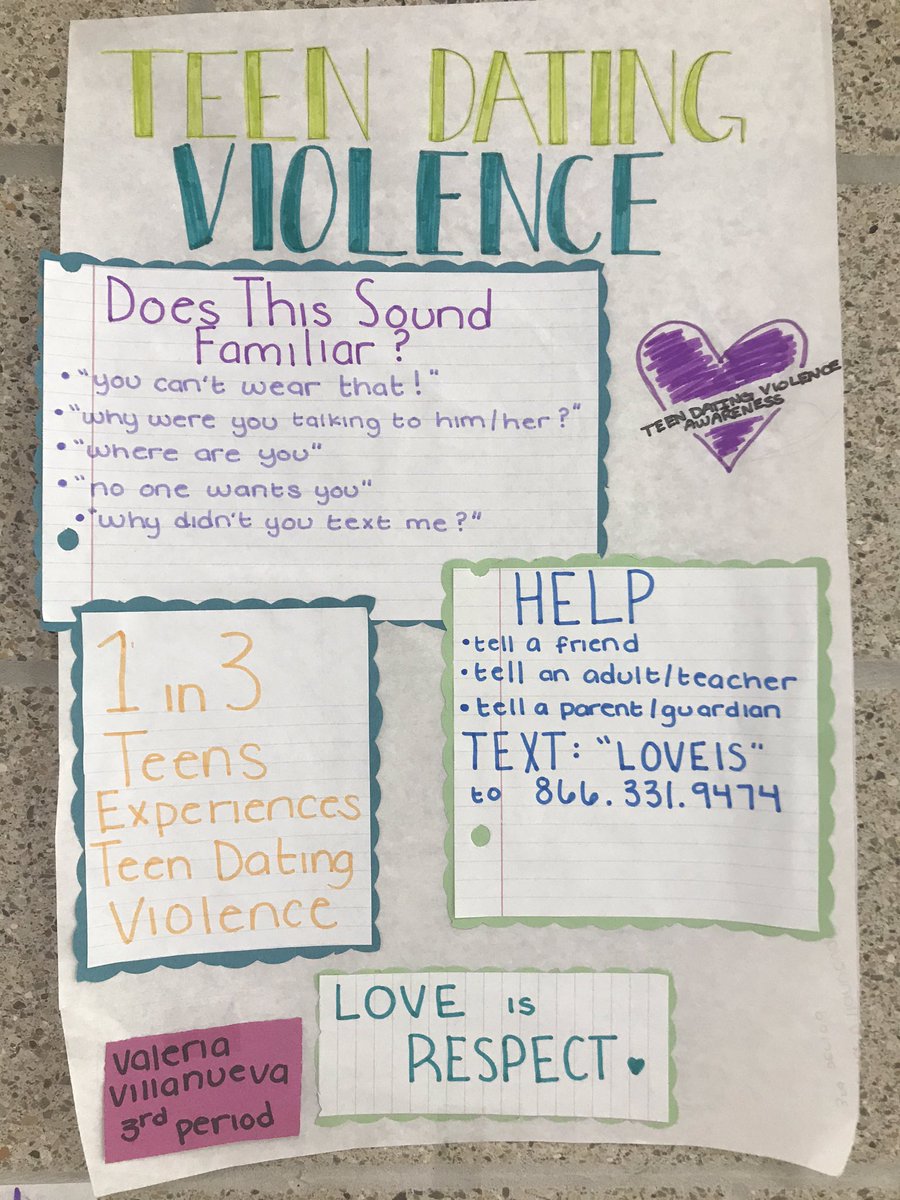 TEEN DATING
VIOLENCE
Does This Sound
Familiar?
• "you can't wear that!"
• "why were you talking to him/her?"
• "where are you"
• "no one wants you"
• "why didn't you text me?"
TEEN DATING VIOLENCE
AWARENESS
1 in 3
Teens
Experiences
Teen Dating
Violence
HELP
• tell a friend
• tell an adult/teacher
• tell a parent/guardian
TEXT: "LOVEIS"
to 866.331.9474
LOVE is
RESPECT.
Valeria
Villanueva
3rd period